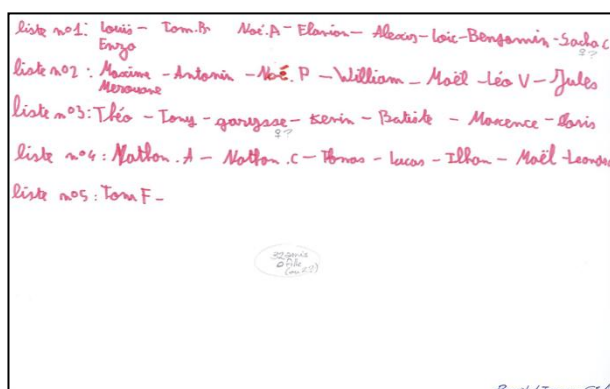 liste n°1: Louis - Tom.B Noé.A - Elavion - Alexis - Loïc - Bengamin - Sacha C
Enzo ♀?
liste n°2 : Maxime - Antonin - Noé.P - William - Maël - Léo V - Jules
Merouane
liste n°3: Théo - Tony - - Kevin - Batiste - Maxence - Loris
♀?
liste n°4: Nathan.A - Nathan.C - Thomas - Lucas - Ilhan - Maël - Leonard
liste n°5: Tom F -